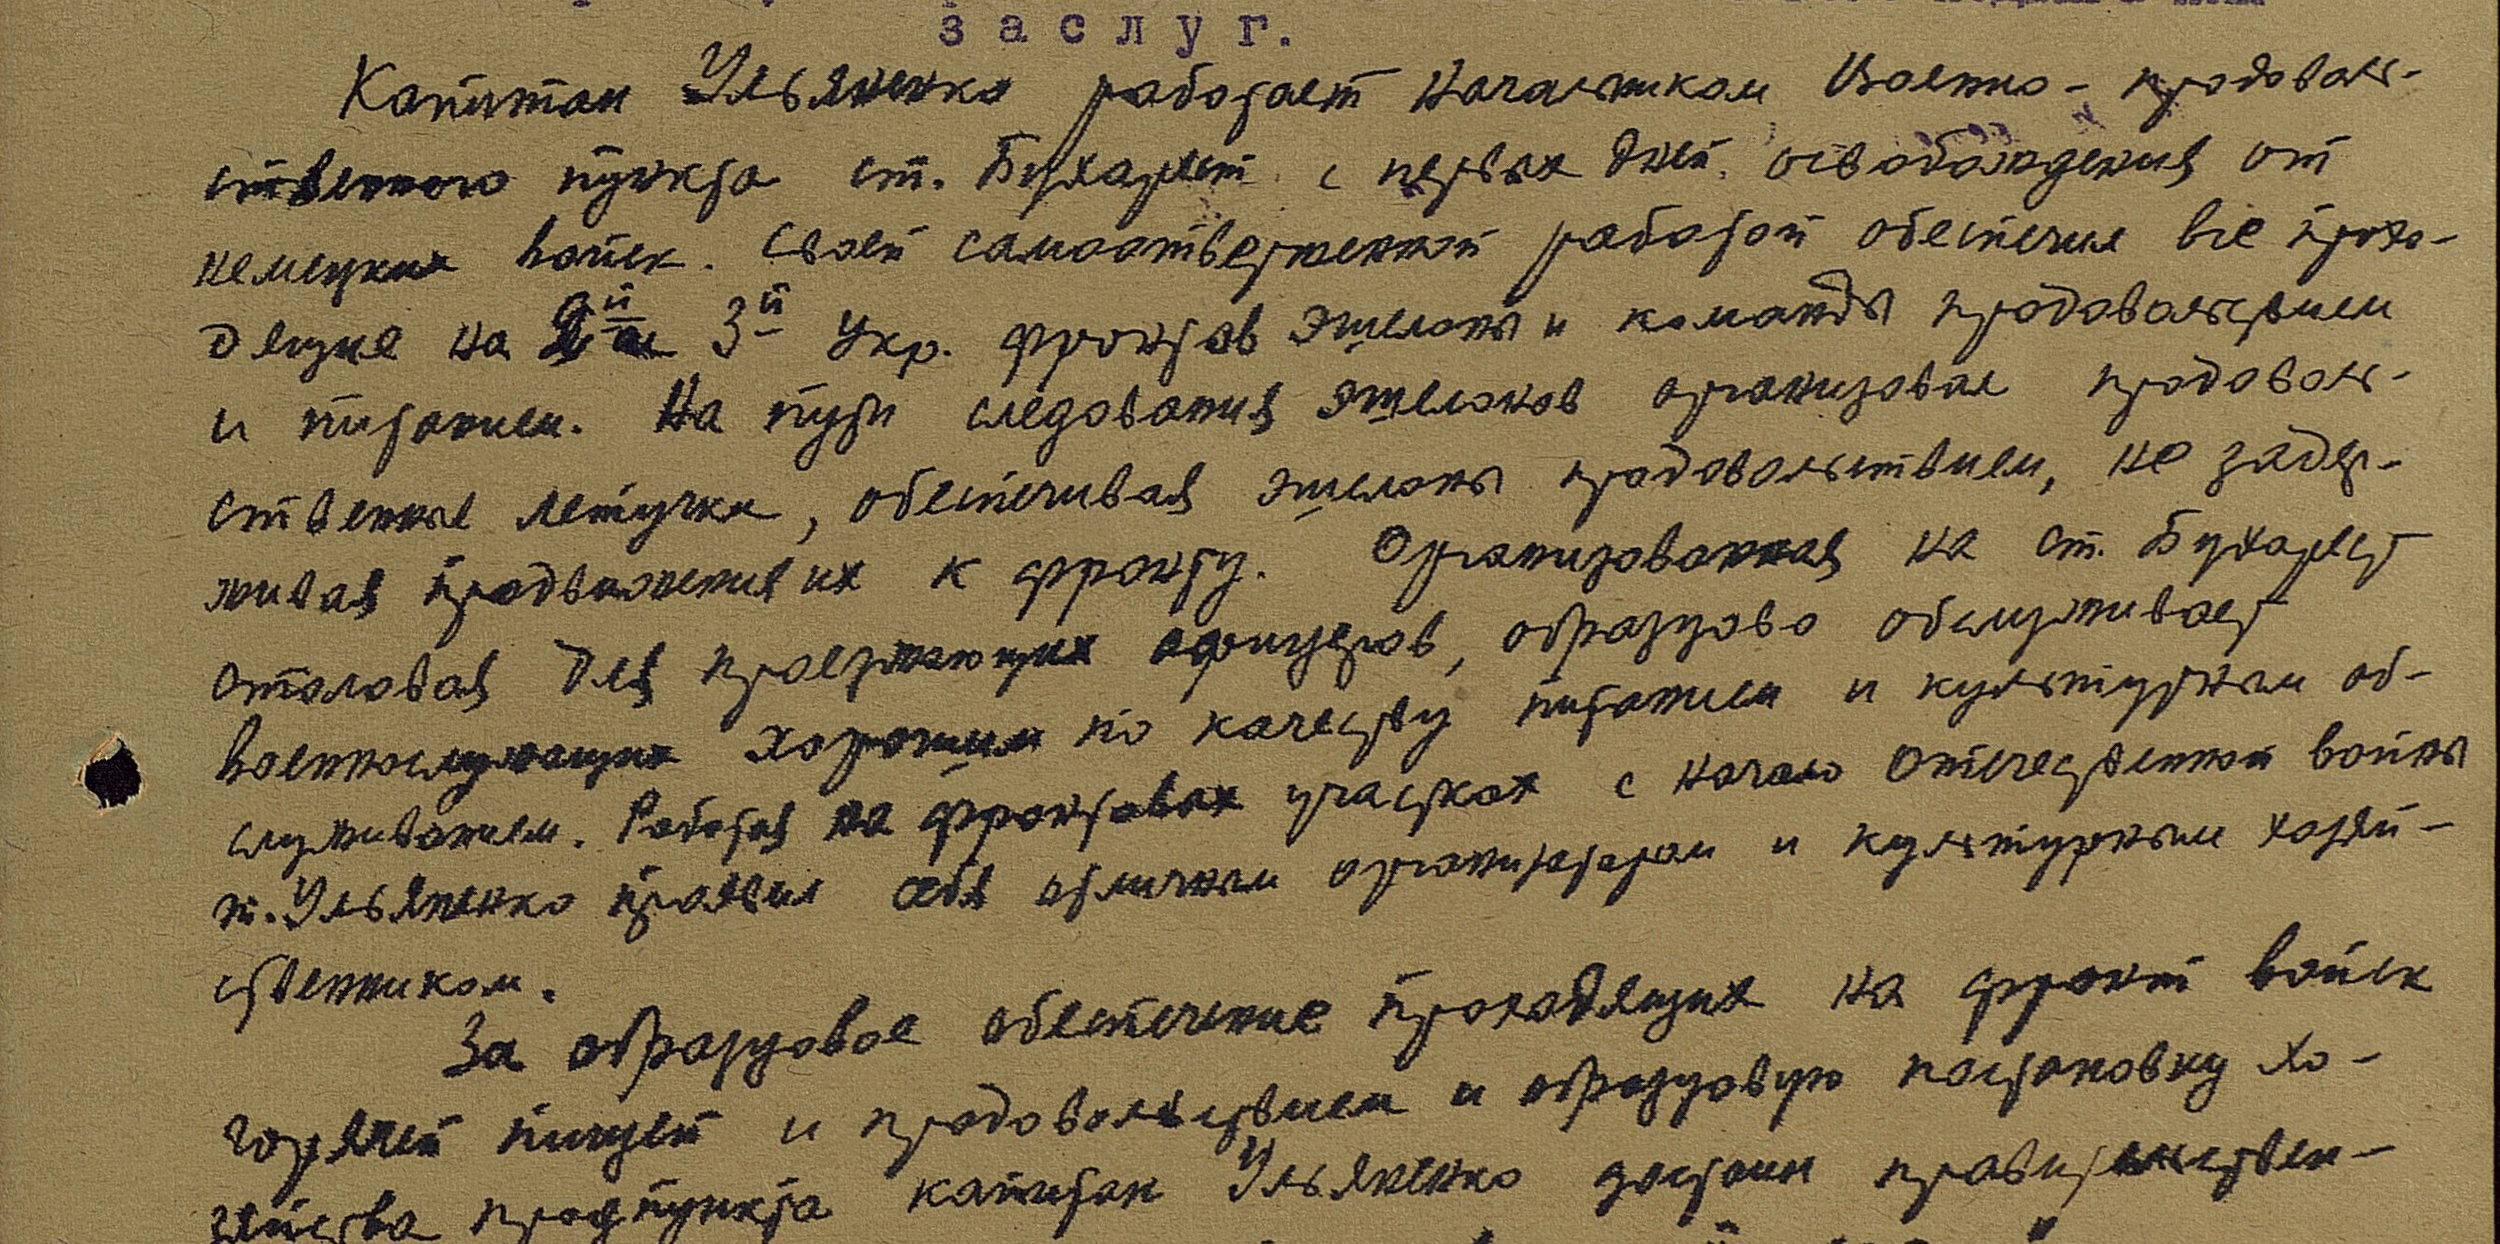 заслуг.
Капитан Ульяненко работает Начальником Военно-продоволь-
ственного пункта ст. Бухарест с первых дней освобождения от
немецких войск. Своей самоотверженной работой обеспечил все прохо-
дящие на 2й и 3й Укр. фронтов эшелоны и команды продовольствием
и питанием. На пути следования эшелонов организовал продоволь-
ственные летучки, обеспечивая эшелоны продовольствием, не задер-
живая продвижения их к фронту. Организованная на ст. Бухарест
столовая для проезжающих офицеров, образцово обслуживает
военнослужащих хорошим по качеству питанием и культурным об-
служиванием. Работая на фронтовых участках с начало Отечественной войны
т. Ульяненко проявил себя отличным организатором и культурным хозяй-
ственником.
За образцовое обеспечение проходящих на фронт войск
горячей пищей и продовольствием и образцовую постановку хо-
зяйства продпункта капитан Ульяненко достоин правительствен-